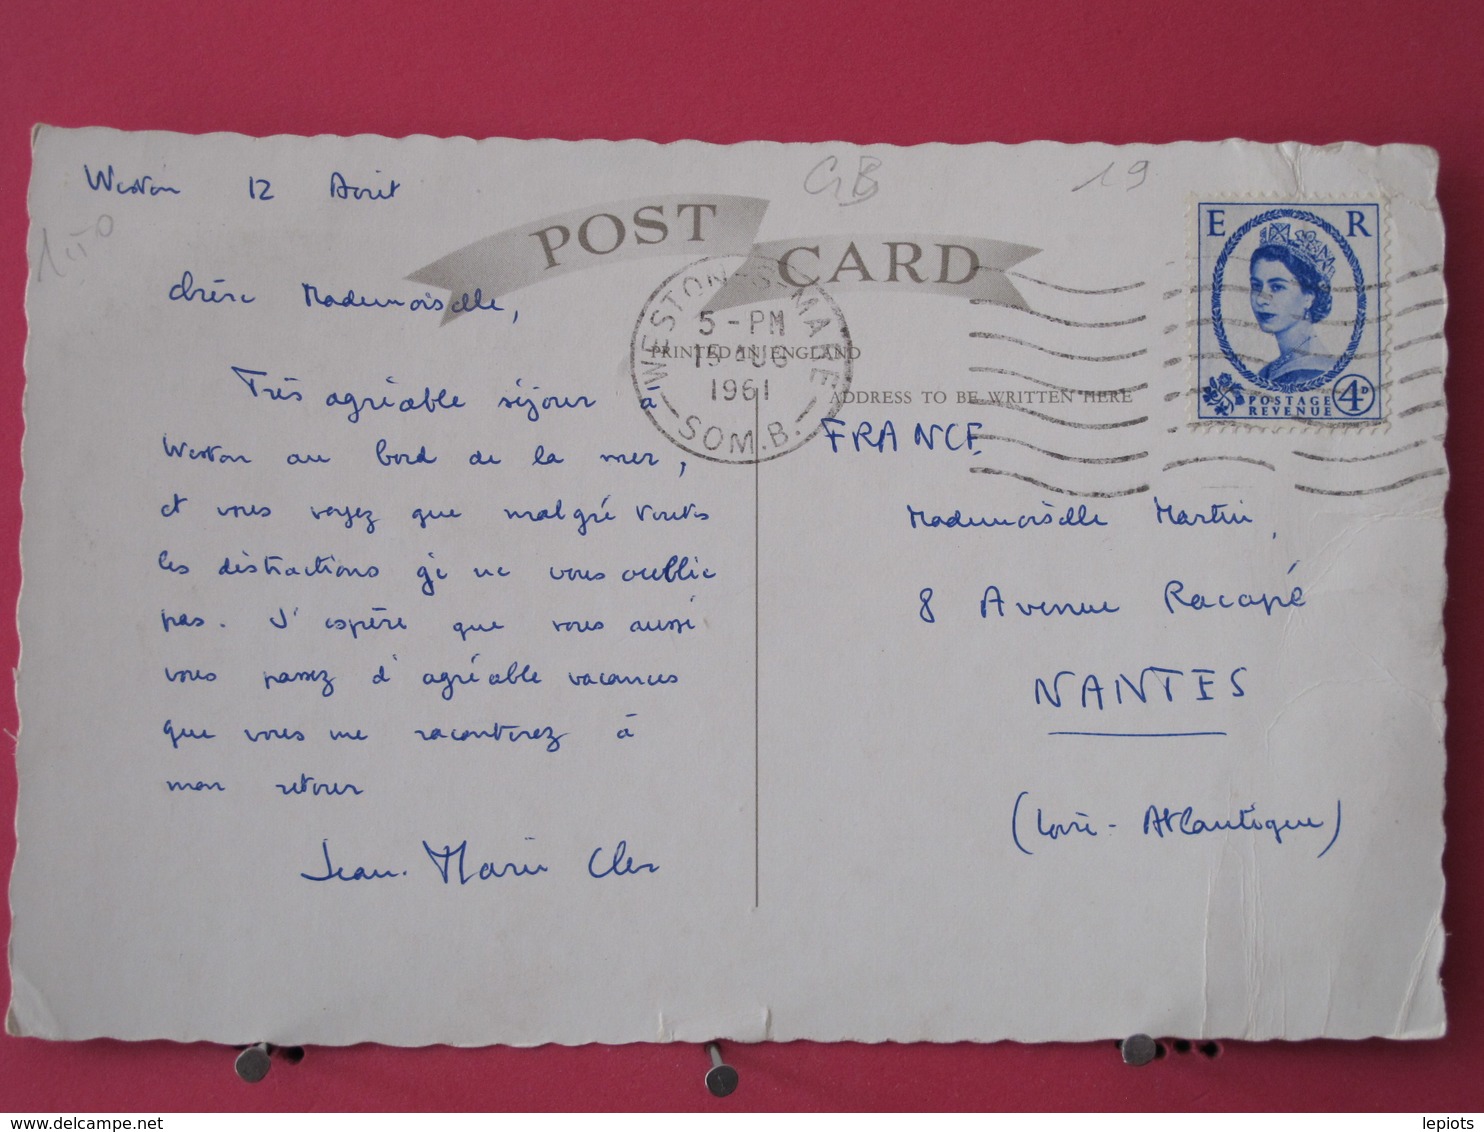 Weston 12 Août
GB 19
POST CARD
Chère Mademoiselle,
Très agréable séjour à
Weston au bord de la mer,
et vous voyez que malgré toutes
les distractions je ne vous oublie
pas. J'espère que vous aussi
vous passez d'agréable vacances
que vous me raconterez à
mon retour
Jean-Marie
PRINTED IN ENGLAND
WESTON-S-MARE
5-PM
AUG
1961
SOM.B.
ADDRESS TO BE WRITTEN HERE
E R
POSTAGE
REVENUE
4D
FRANCE
Mademoiselle Martin,
8 Avenue Racapé
NANTES
(Loire-Atlantique)
lepiots